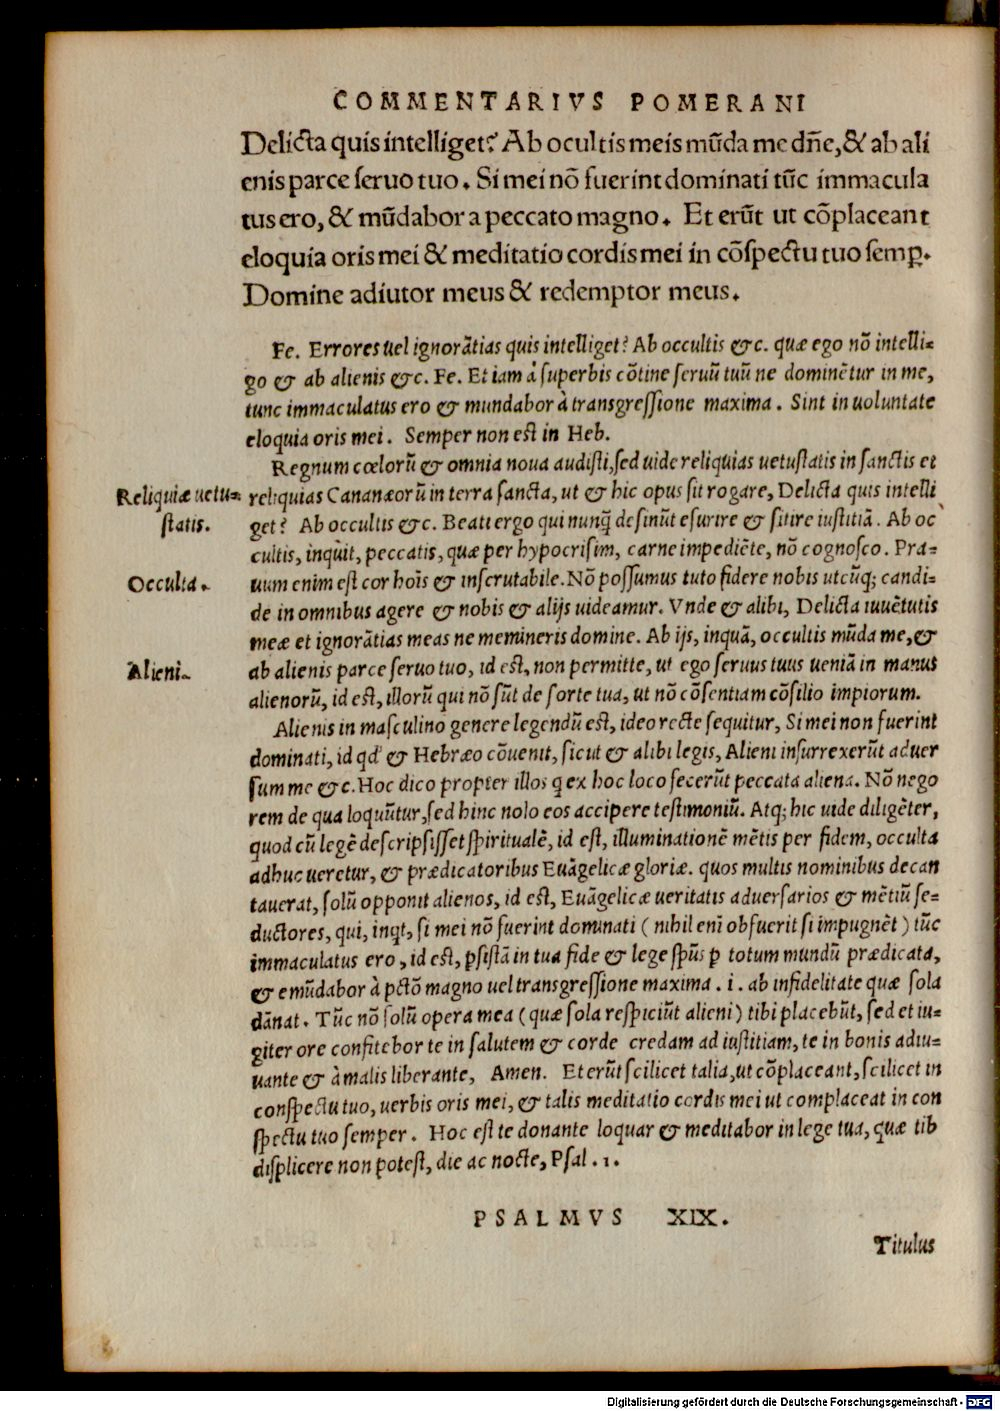 COMMENTARIVS POMERANI
Delicta quis intelliget? Ab ocultis meis mūda me dñe, & ab ali
enis parce seruo tuo. Si mei nō fuerint dominati tūc immacula
tus ero, & mūdabor a peccato magno. Et erūt ut cōplaceant
eloquia oris mei & meditatio cordis mei in cōspectu tuo semp.
Domine adiutor meus & redemptor meus.
Fe. Errores uel ignorātias quis intelliget? Ab occultis &c. quæ ego nō intelli=
go & ab alienis &c. Fe. Et iam à superbis cōtine seruū tuū ne dominētur in me,
tunc immaculatus ero & mundabor à transgressione maxima. Sint in uoluntate
eloquia oris mei. Semper non est in Heb.
Regnum cœlorū & omnia noua audisti, sed uide reliquias uetustatis in sanctis et
Reliquiæ uetu= reliquias Cananæorū in terra sancta, ut & hic opus sit rogare, Delicta quis intelli
statis. get? Ab occultis &c. Beati ergo qui nunq̃ desinūt esurire & sitire iustitiā. Ab oc
cultis, inquit, peccatis, quæ per hypocrisim, carne impediēte, nō cognosco. Pra=
Occulta. uum enim est cor hoīs & inscrutabile. Nō possumus tuto fidere nobis utcūq; candi=
de in omnibus agere & nobis & alijs uideamur. Vnde & alibi, Delicta iuuētutis
meæ et ignorātias meas ne memineris domine. Ab ijs, inquā, occultis mūda me, &
Alieni. ab alienis parce seruo tuo, id est, non permitte, ut ego seruus tuus ueniā in manus
alienorū, id est, illorū qui nō sūt de sorte tua, ut nō cōsentiam cōsilio impiorum.
Alienis in masculino genere legendū est, ideo recte sequitur, Si mei non fuerint
dominati, id qd' & Hebræo cōuenit, sicut & alibi legis, Alieni insurrexerūt aduer
sum me &c. Hoc dico propter illos q ex hoc loco fecerūt peccata aliena. Nō nego
rem de qua loquūtur, sed hinc nolo eos accipere testimoniū. Atq; hic uide diligēter,
quod cū legē descripsisset spiritualē, id est, illuminationē mētis per fidem, occulta
adhuc ueretur, & prædicatoribus Euāgelicæ gloriæ. quos multis nominibus decan
tauerat, solū opponit alienos, id est, Euāgelicæ ueritatis aduersarios & mētiū se=
ductores, qui, inqt, si mei nō fuerint dominati (nihil enī obfuerit si impugnēt) tūc
immaculatus ero, id est, psistā in tua fide & lege spūs p totum mundū prædicata,
& emūdabor à pctō magno uel transgressione maxima. i. ab infidelitate quæ sola
dānat. Tūc nō solū opera mea (quæ sola respiciūt alieni) tibi placebūt, sed et iu=
giter ore confitebor te in salutem & corde credam ad iustitiam, te in bonis adiu=
uante & à malis liberante, Amen. Et erūt scilicet talia, ut cōplaceant, scilicet in
conspectu tuo, uerbis oris mei, & talis meditatio cordis mei ut complaceat in con
spectu tuo semper. Hoc est te donante loquar & meditabor in lege tua, quæ tib
displicere non potest, die ac nocte, Psal. 1.
PSALMVS XIX.
Titulus
Digitalisierung gefördert durch die Deutsche Forschungsgemeinschaft - DFG